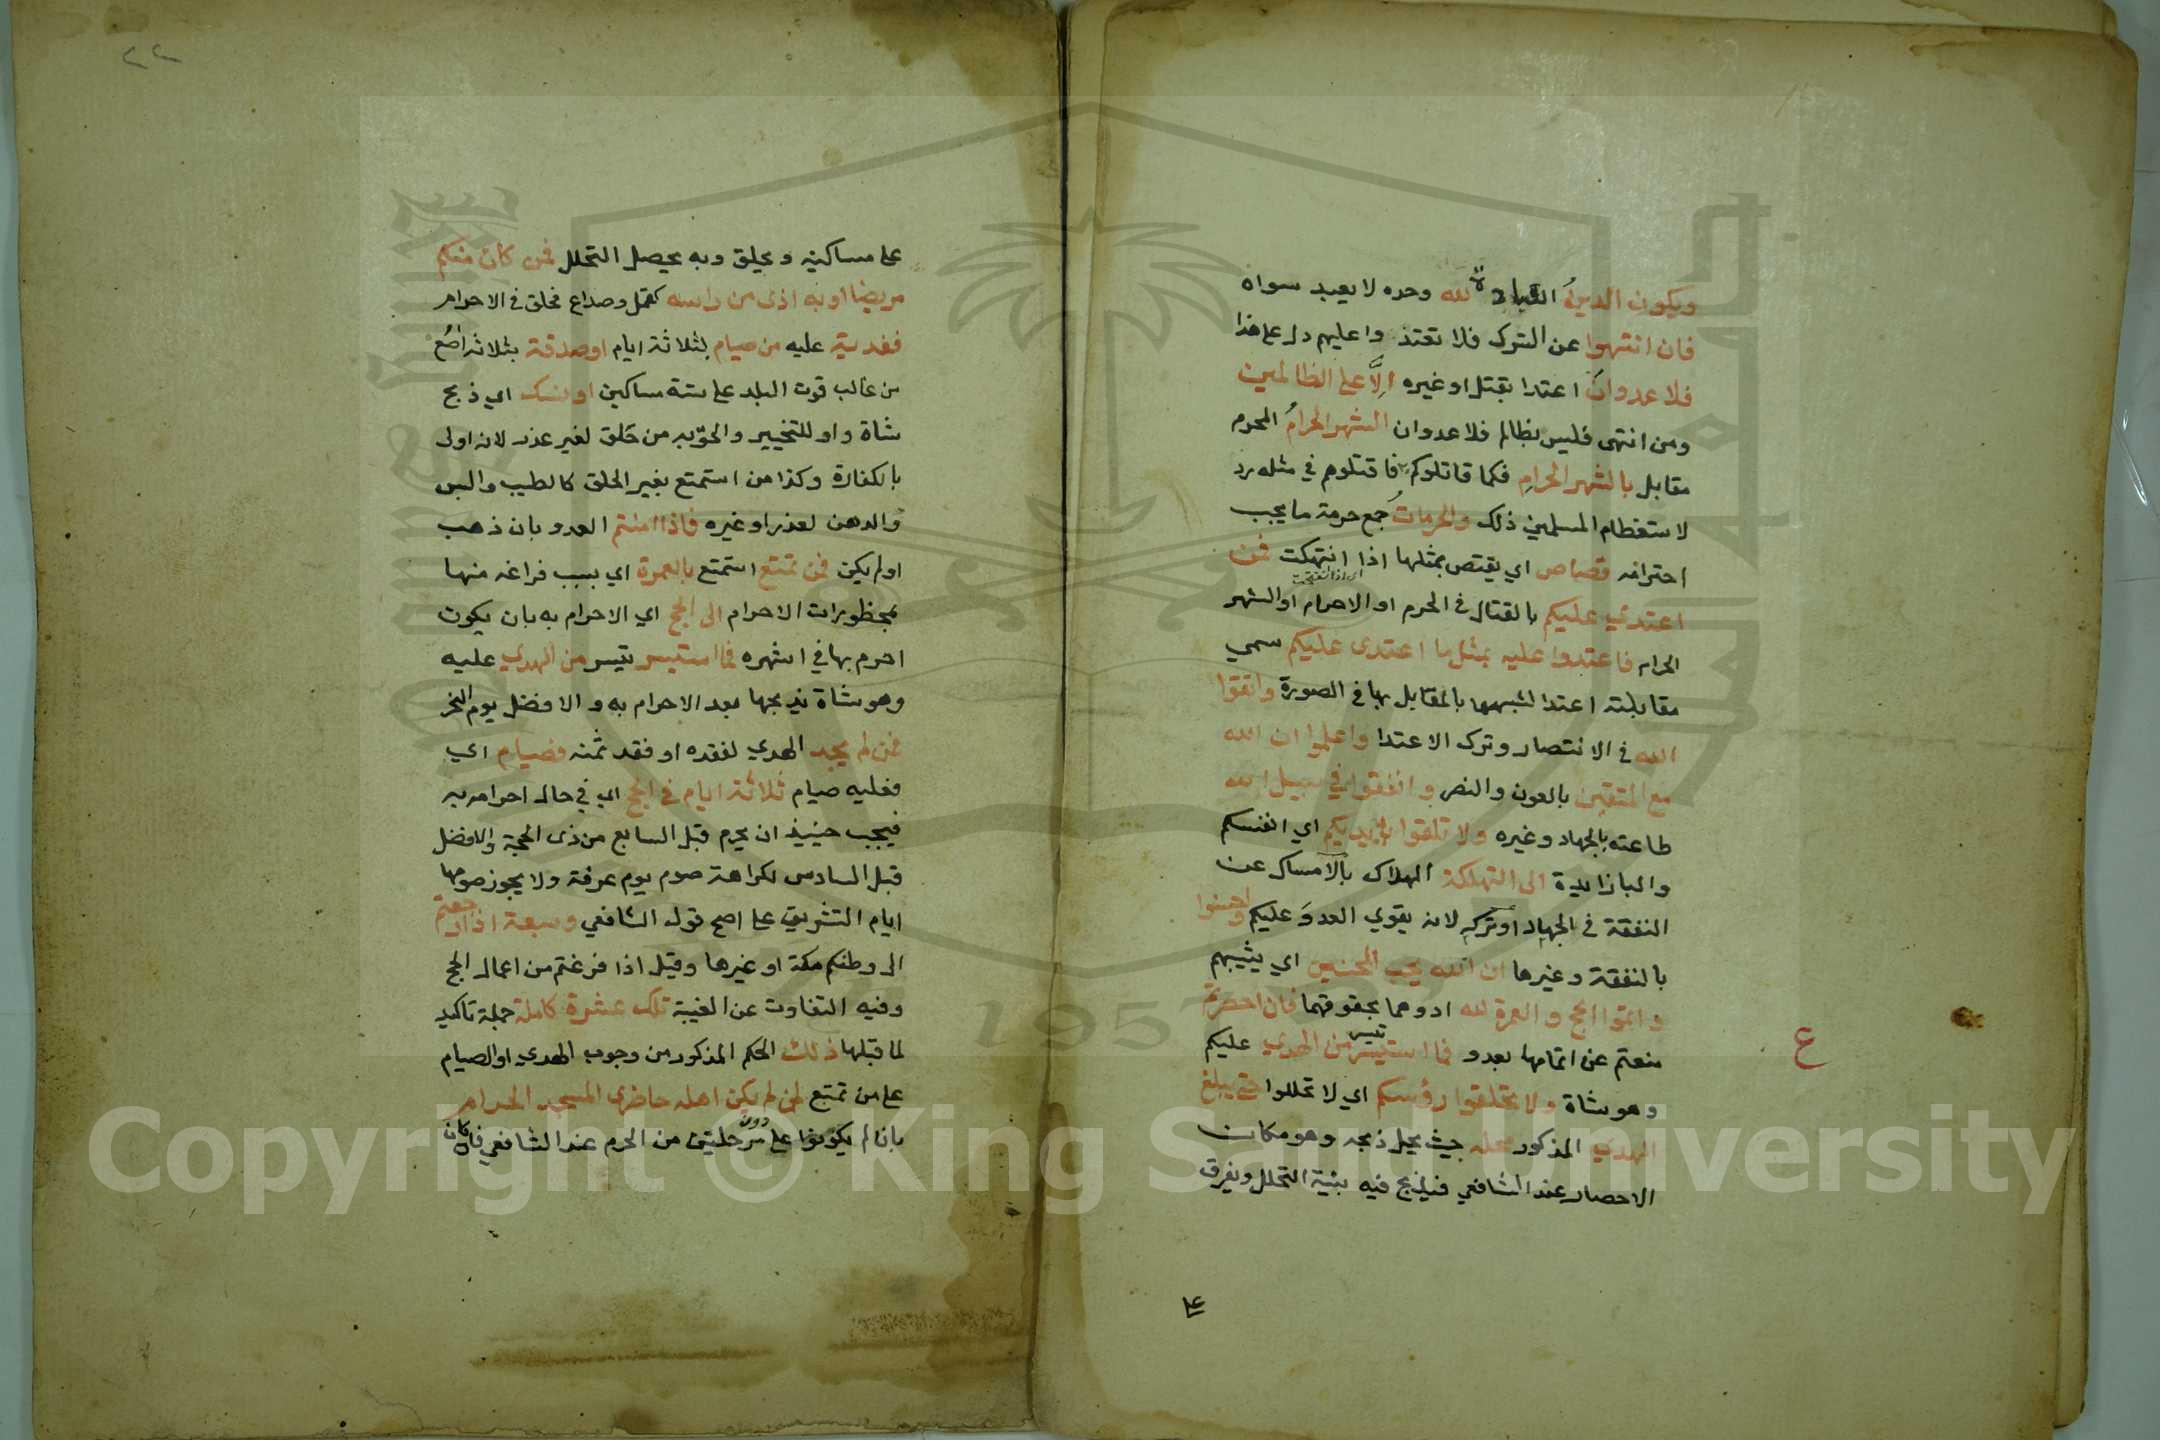 ويكون الدينُ العبادة لله وحده لا يعبد سواه
فان انتهوا عن الشرك فلا تعتدوا عليهم دل على هذا
فلا عدوانَ اعتدا بقتل او غيره اِلَّا على الظالمين
ومن انتهى فليس بظالم فلا عدوان الشهر الحرامُ المحرم
مقابل بالشهر الحرامِ فكما قاتلوكم فاقتلوهم في مثله رد
لاستعظام المسلمين ذلك والحرمات جمع حرمة ما يجب
احترامه قصاص اي يقتص بمثلها اذا انتهكت فمن
اعتدي عليكم بالقتال في الحرم او الاحرام او الشهر
الحرام فاعتدوا عليه بمثل ما اعتدى عليكم سمي
مقابلته اعتدا لشبهها بالمقابل بها في الصورة واتقوا
الله في الانتصار وترك الاعتدا واعلموا ان الله
مع المتقين بالعون والنصر وانفقوا في سبيل الله
طاعته بالجهاد وغيره ولا تلقوا بايديكم اي انفسكم
والبا زايدة الى التهلكة الهلاك بالامساك عن
النفقة في الجهاد او تركه لانه يقوي العدوَ عليكم واحسنوا
بالنفقة وغيرها ان الله يحب المحسنين اي يثيبهم
واتموا الحج والعمرة لله ادوهما بحقوقهما فان احصرتم
منعتم عن اتمامها بعدو فما استيسر تيسر من الهدي عليكم
وهو شاة ولا تحلقوا رؤسكم اي لا تحللوا حتى يبلغ
الهدي المذكور محله حيث يحل ذبحه وهو مكان
الاحصار عند الشافعي فيذبح فيه بنية التحلل ويفرق
على
ع
٢٢
على مساكينه ويحلق وبه يحصل التحلل فمن كان منكم
مريضا او به اذى من راسه كقمل وصداع فحلق في الاحرام
ففدية عليه من صيام لثلاثة ايام او صدقة بثلاثة اصُع
من غالب قوت البلد على ستة مساكين او نسك اي ذبح
شاة واو للتخيير والحق به من حَلق لغير عذر لانه اولى
بالكفارة وكذا من استمتع بغير الحلق كالطيب واللبس
والدهن لعذر او غيره فاذا امنتم العدو بان ذهب
او لم يكن فمن تمتع استمتع بالعمرة اي بسبب فراغه منها
بمحظورات الاحرام الى الحج اي الاحرام به بان يكون
احرم بها في اشهره فما استيسر تيسر من الهدي عليه
وهو شاة يذبحها بعد الاحرام به والافضل يوم النحر
فمن لم يجد الهدي لفقده او فقد ثمنه فصيام اي
فعليه صيام ثلاثة ايام في الحج اي في حال احرامه به
فيجب حينيذ ان يحرم قبل السابع من ذى الحجة والافضل
قبل السادس لكراهة صوم يوم عرفة ولا يجوز صومها
ايام التشريق على اصح قول الشافعي وسبعة اذا رجعتم
الى وطنكم مكة او غيرها وقيل اذا فرغتم من اعمال الحج
وفيه التفاوت عن الغيبة تلك عشرة كاملة جملة تاكيد
لما قبلها ذلك الحكم المذكور من وجوب الهدي او الصيام
على من تمتع لمن لم يكن اهله حاضرى المسجد الحرام
بان لم يكونوا على دون مرحلتين من الحرم عند الشافعي فان كان
1957
Copyright © King Saud University